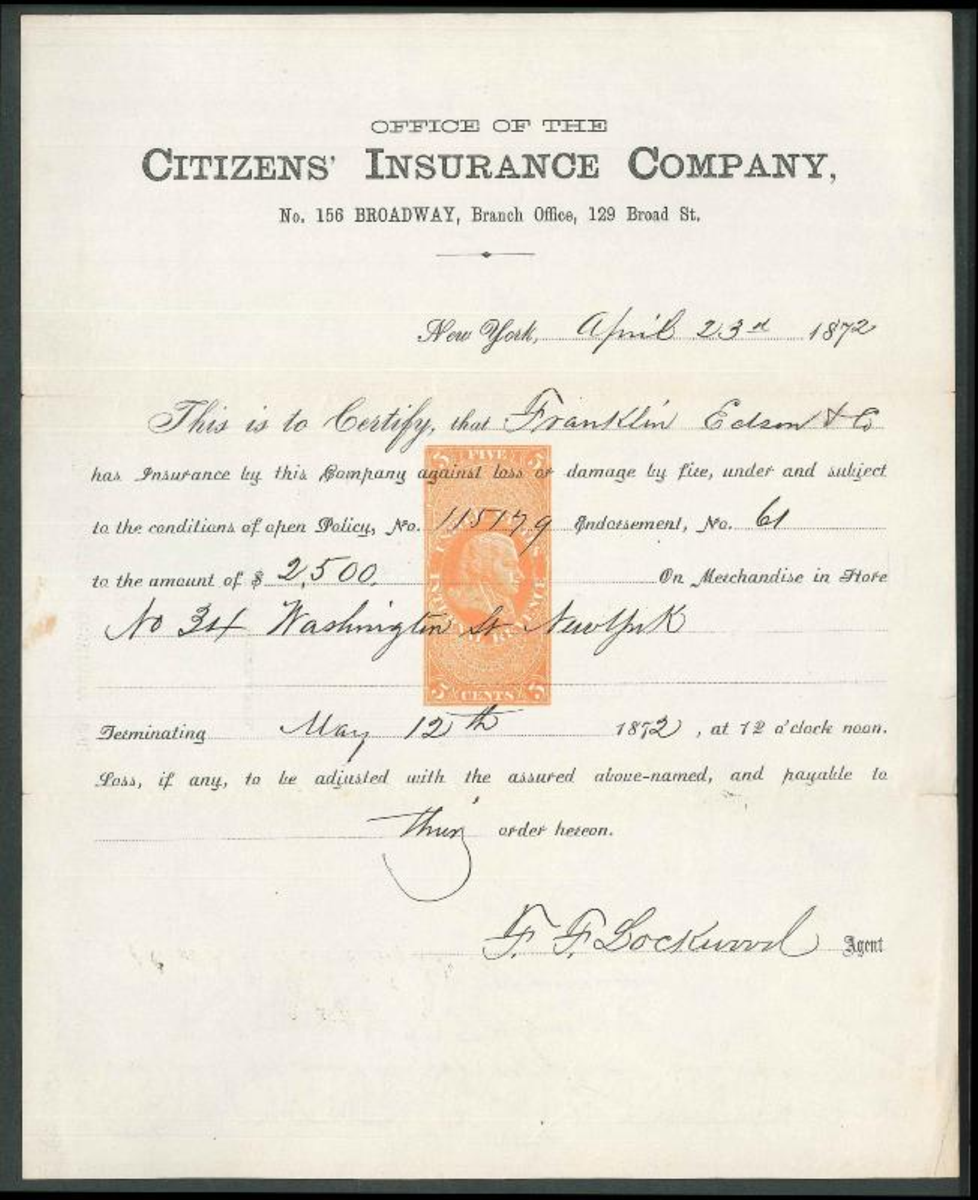 OFFICE OF THE
CITIZENS' INSURANCE COMPANY,
No. 156 BROADWAY, Branch Office, 129 Broad St.
New York, April 23rd 1872
This is to Certify, that Franklin Edson & Co
has Insurance by this Company against loss or damage by fire, under and subject
to the conditions of open Policy, No. 115179 Endorsement, No. 61
to the amount of $ 2,500. On Merchandise in Store
No 34 Washington St New York
FIVE
INTERNAL REVENUE
5 CENTS 5
Terminating May 12th 1872, at 12 o'clock noon.
Loss, if any, to be adjusted with the assured above-named, and payable to
their order hereon.
F. F. Lockwood Agent